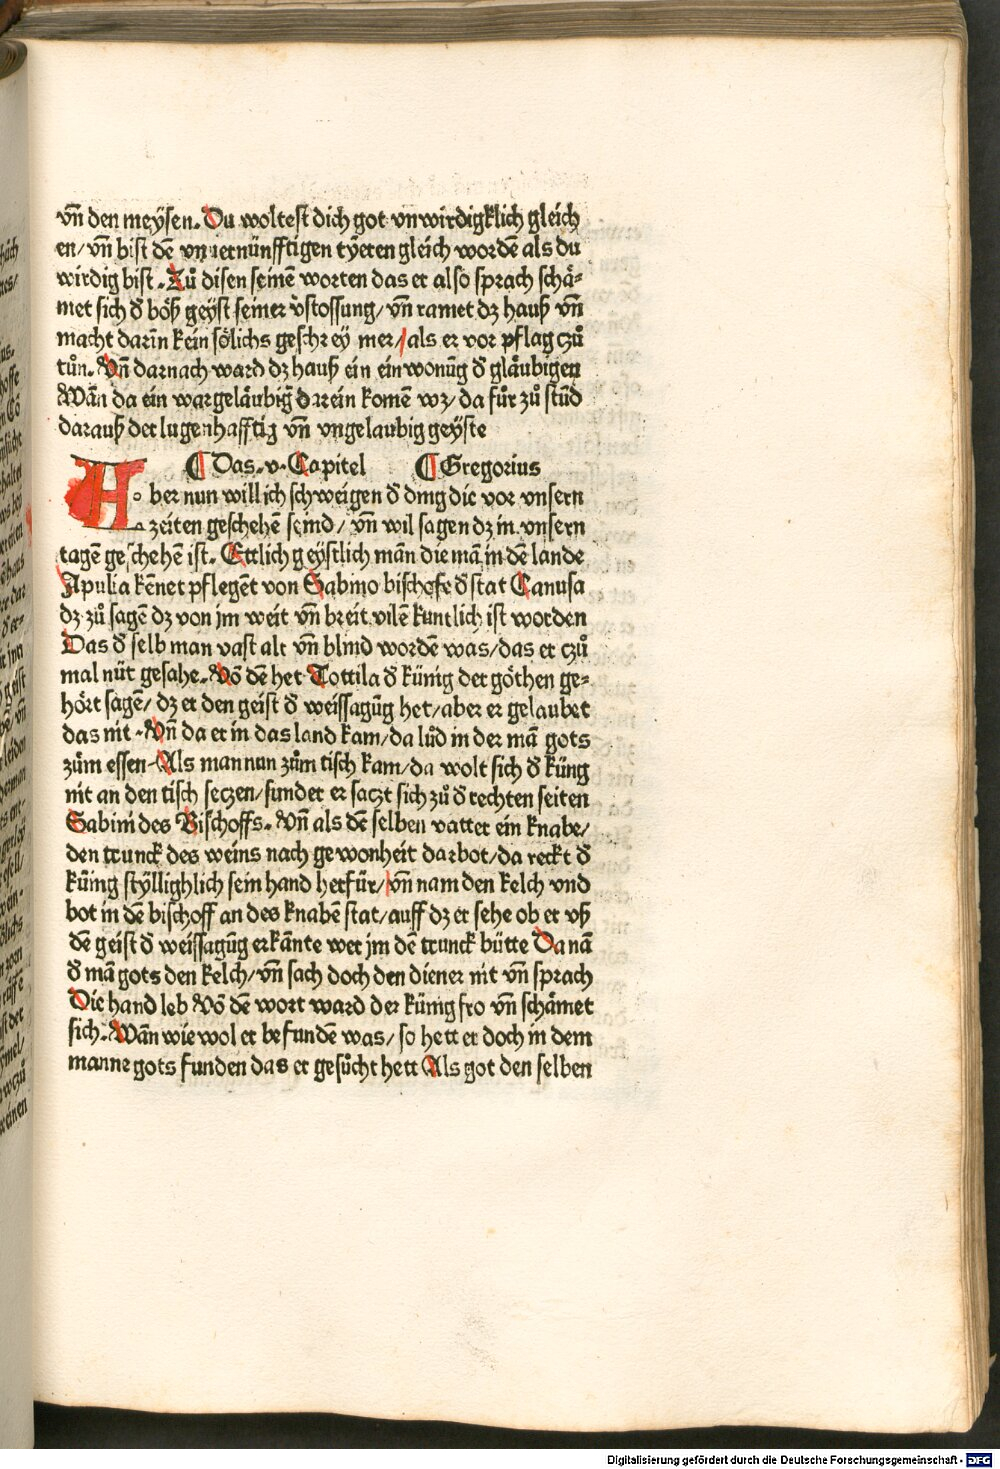 vn̄ den meÿsen. Du woltest dich got vnwirdigklich gleich
en/ vn̄ bist dē vnuernünfftigen tÿeren gleich wordē als du
wirdig bist. Zů disen seinē worten das er also sprach schå-
met sich d̕ böß geÿst seiner v̕stossung/ vn̄ ramet dz hauß vn̄
macht darin kein sölichs geschreÿ mer/ als er vor pflag czů
tůn. Vn̄ darnach ward dz hauß ein einwonūg d̕ glåubigen
Wān da ein war gelåubiḡ darein komē wz/ da fůr zů stūd
darauß der lugenhafftig vn̄ vngelaubig geÿste
⸿ Das .v. Capitel ⸿ Gregorius
Aber nun will ich schweigen d̕ ding die vor vnsern
zeiten geschehē seind/ vn̄ wil sagen dz in vnsern
tagē geschehē ist. Ettlich geÿstlich mān die mā in dē lande
Apulia kēnet pflegēt von Sabino bischofe d̕ stat Canusa
dz zů sagē dz von jm weit vn̄ breit vilē kuntlich ist worden
Das d̕ selb man vast alt vn̄ blind wordē was/ das er czů
mal nüt gesahe. Vō dē het Tottila d̕ künig der göthen ge-
hört sagē/ dz er den geist d̕ weissagūg het/ aber er gelaubet
das nit. Vn̄ da er in das land kam/ da lůd in der mā gots
zům essen. Als man nun zům tisch kam/ da wolt sich d̕ küng
nit an den tisch seczen/ sunder er saczt sich zů d̕ rechten seiten
Sabini des Bischoffs. Vn̄ als dē selben vatter ein knabe/
den trunck des weins nach gewonheit darbot/ da reckt d̕
künig stÿllighlich sein hand herfür/ vn̄ nam den kelch vnd
bot in dē bischoff an des knabē stat/ auff dz er sehe ob er vß
dē geist d̕ weissagūg erkānte wer jm dē trunck bütte Da nā
d̕ mā gots den kelch/ vn̄ sach doch den diener nit vn̄ sprach
Die hand leb Vō dē wort ward der künig fro vn̄ schåmet
sich. Wān wie wol er befundē was/ so hett er doch in dem
manne gots funden das er gesůcht hett Als got den selben
Digitalisierung gefördert durch die Deutsche Forschungsgemeinschaft - DFG